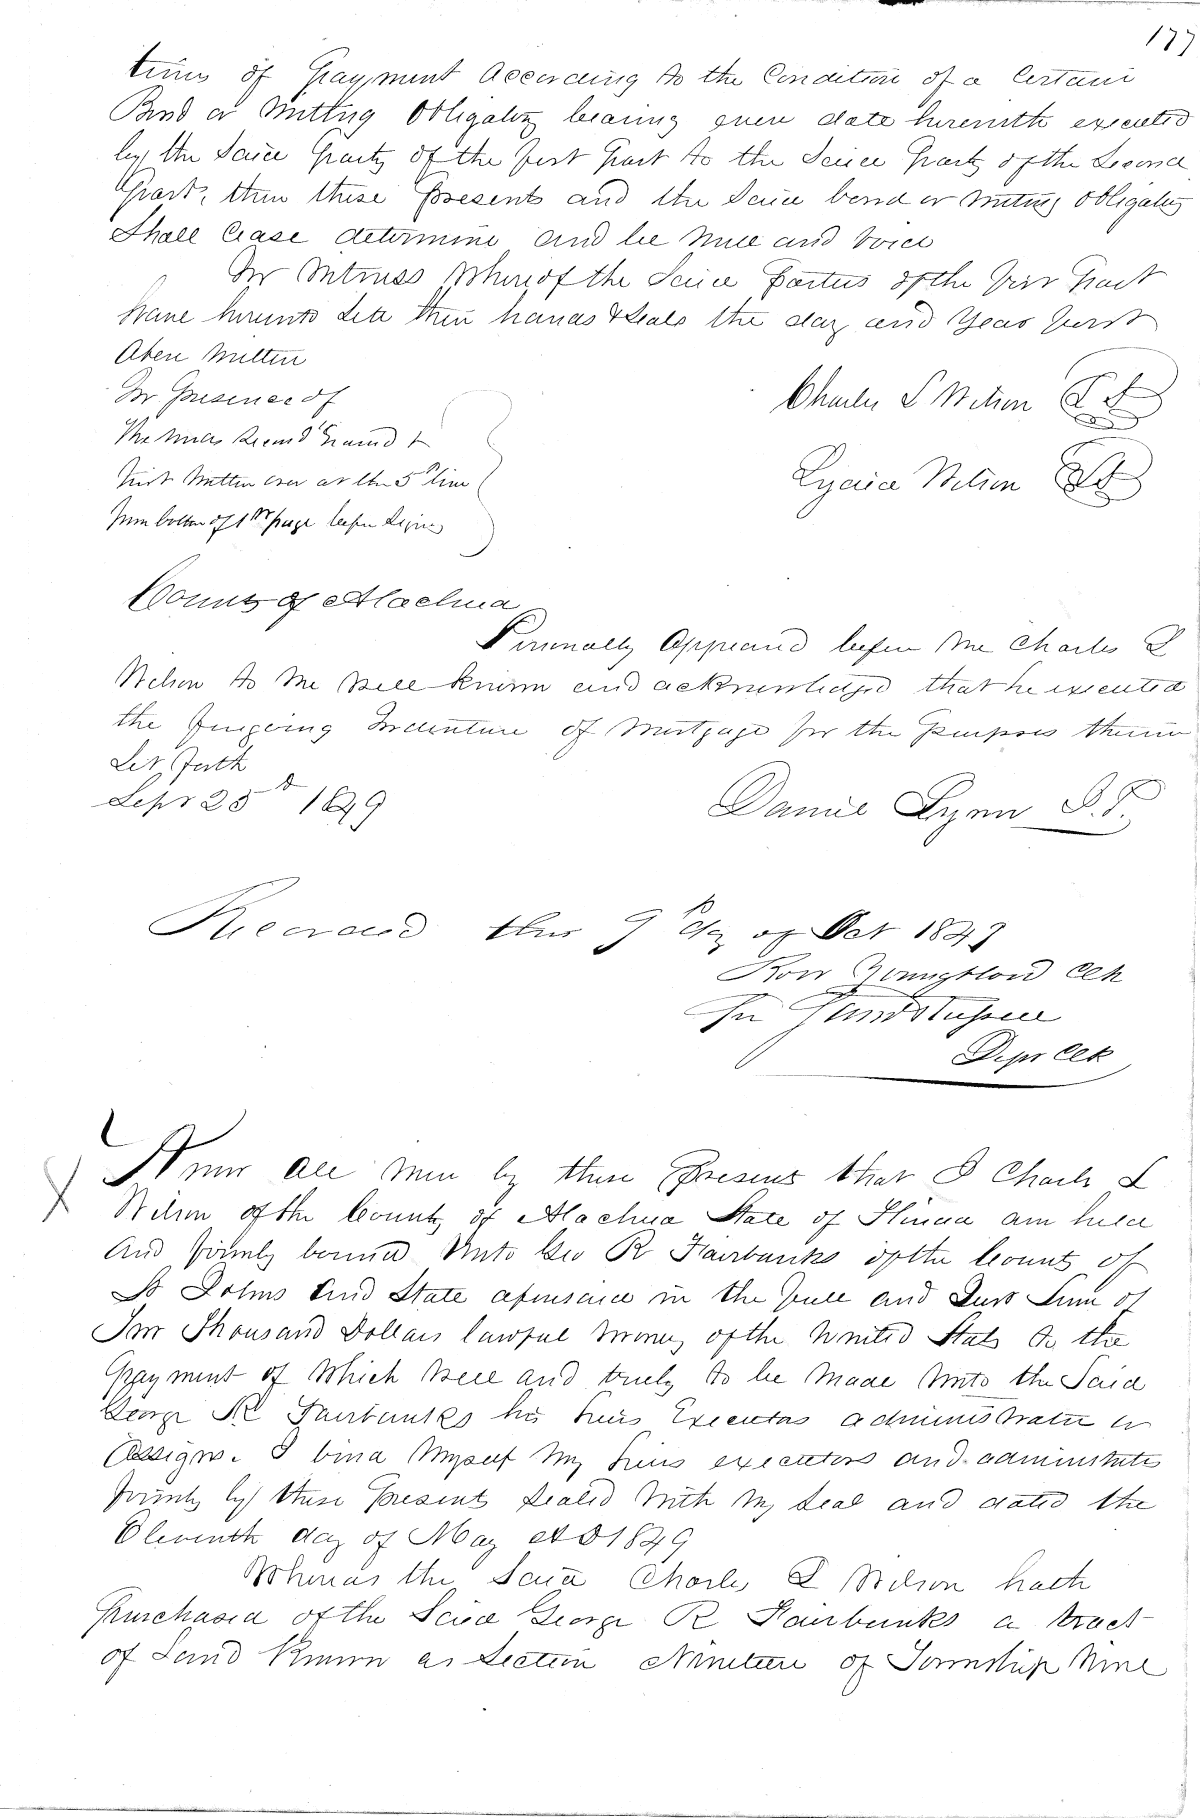 177
times of Payment According to the Condition of a Certain
Bond or Writing Obligatory bearing even date herewith executed
by the Said Party of the first Part to the Said Party of the Second
Part, then these Presents and the Said bond or writing obligatory
Shall Cease determine and be Null and Void
In Witness Whereof the Said Parties of the first Part
have hereunto Set their hands & Seals the day and Year first
Above Written
In Presence of
The words Second Named &
first Written over at the 5th line
from bottom of 1st page before Signing
Charles L Wilson L S
Lydia Wilson L S
County of Alachua
Personally Appeared before me Charles L
Wilson to Me Well Known and acknowledged that he executed
the foregoing Indenture of Mortgage for the Purposes therein
Set forth
Sept 25th 1849
Daniel Lynn J.P.
Recorded this 9th day of Oct 1849
Youngblood Clk
Dept Clk
Know All Men by these Presents that I Charls L
Wilson of the County of Alachua State of Florida am held
And firmly bound Unto Geo R Fairbanks of the County of
St Johns And State aforesaid in the full and Just Sum of
Four Thousand Dollars lawful Money of the United Stats to the
Payment of Which Well and truly to be Made Unto the Said
George R Fairbanks his heirs Executors administrators or
Assigns. I bind Myself My heirs executors and administrators
firmly by these Presents Sealed With My Seal and dated the
Eleventh day of May AD 1849
Whereas the Said Charles L Wilson hath
Purchased of the Said George R Fairbanks a tract
of Land Known as Section Nineteen of Township Nine